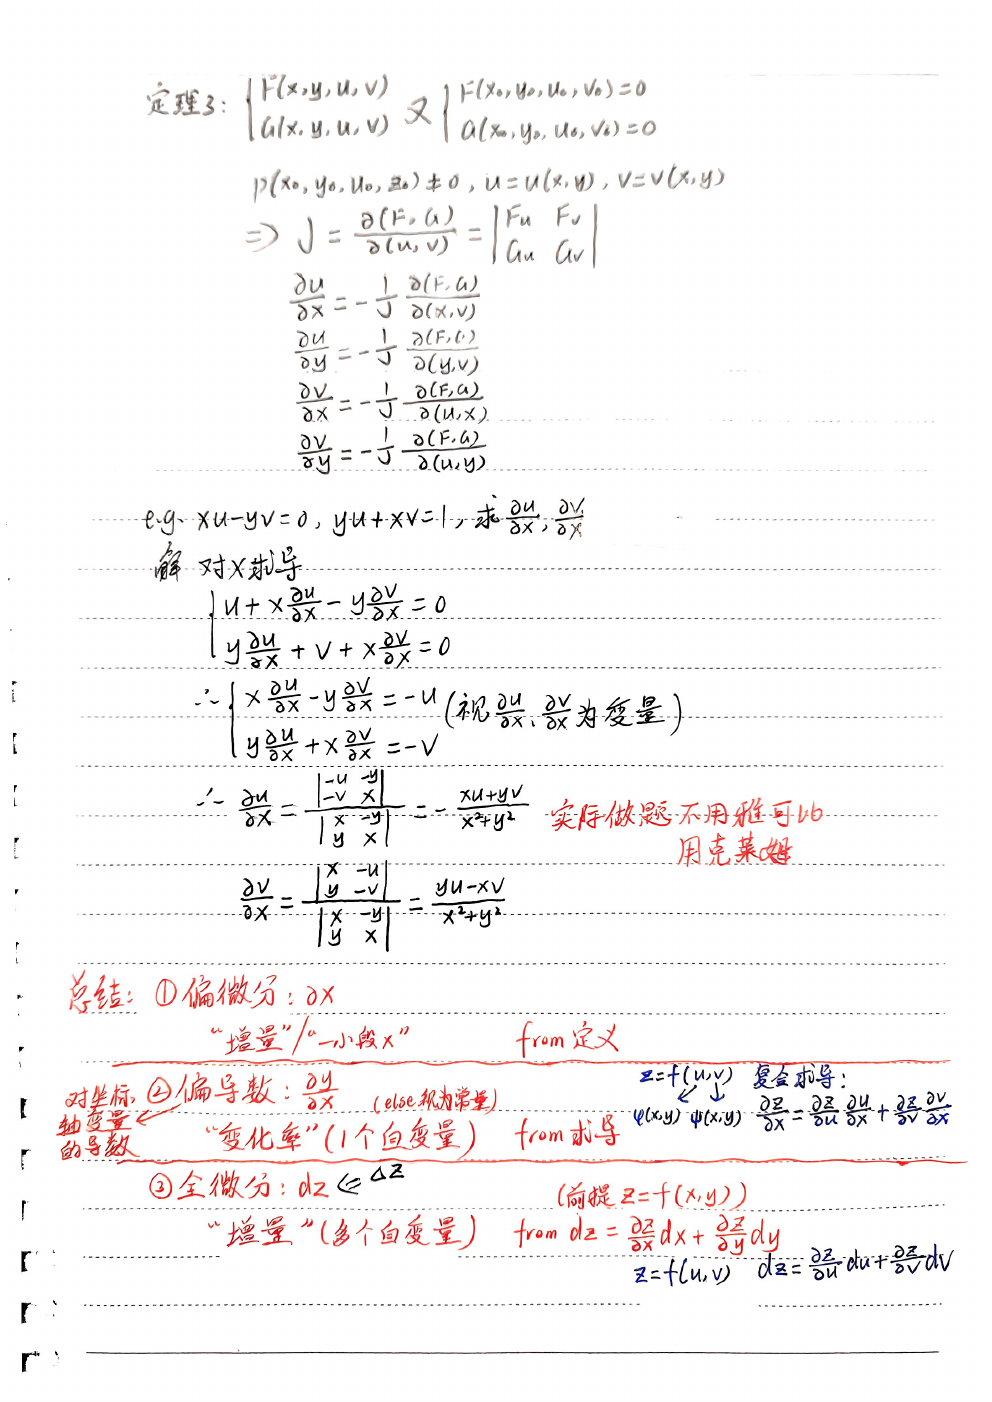 定理3: { F(x,y,u,v) 又 { F(x₀,y₀,u₀,v₀)=0
G(x,y,u,v) G(x₀,y₀,u₀,v₀)=0
P(x₀,y₀,u₀,z₀)≠0, u=u(x,y), v=v(x,y)
⇒ J = ∂(F,G)/∂(u,v) = |Fu Fv; Gu Gv|
∂u/∂x = -1/J ∂(F,G)/∂(x,v)
∂u/∂y = -1/J ∂(F,G)/∂(y,v)
∂v/∂x = -1/J ∂(F,G)/∂(u,x)
∂v/∂y = -1/J ∂(F,G)/∂(u,y)
e.g. xu-yv=0, yu+xv=1, 求∂u/∂x, ∂v/∂x
解 对x求导
{ u + x∂u/∂x - y∂v/∂x = 0
y∂u/∂x + v + x∂v/∂x = 0
∴ { x∂u/∂x - y∂v/∂x = -u (视∂u/∂x、∂v/∂x为变量)
y∂u/∂x + x∂v/∂x = -v
∴ ∂u/∂x = |-u -y; -v x| / |x -y; y x| = - (xu+yv)/(x²+y²)
实际做题不用雅可比
用克莱姆
∂v/∂x = |x -u; y -v| / |x -y; y x| = (yu-xv)/(x²+y²)
总结: ①偏微分: ∂x
"增量"/"一小段x" from定义
对坐标轴变量的导数
②偏导数: ∂y/∂x (else视为常量)
"变化率"(1个自变量) from求导
z=f(u,v) 复合求导:
φ(x,y) ψ(x,y) ∂z/∂x = ∂z/∂u ∂u/∂x + ∂z/∂v ∂v/∂x
③全微分: dz ⇐ Δz
(前提z=f(x,y))
"增量"(多个自变量) from dz = ∂z/∂x dx + ∂z/∂y dy
z=f(u,v) dz = ∂z/∂u du + ∂z/∂v dv